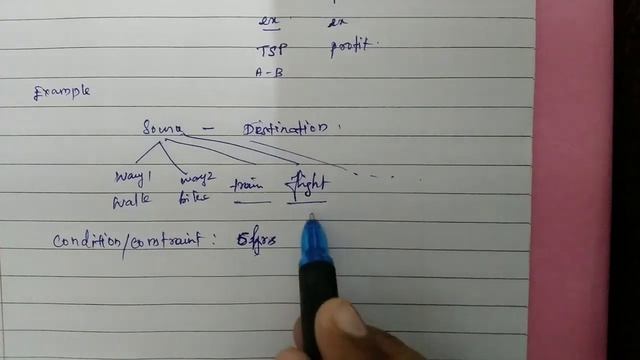 ex ex
TSP profit.
A-B
Example
Source - Destination.
way1 way2 train flight
walk bike
Condition/constraint: 5hrs